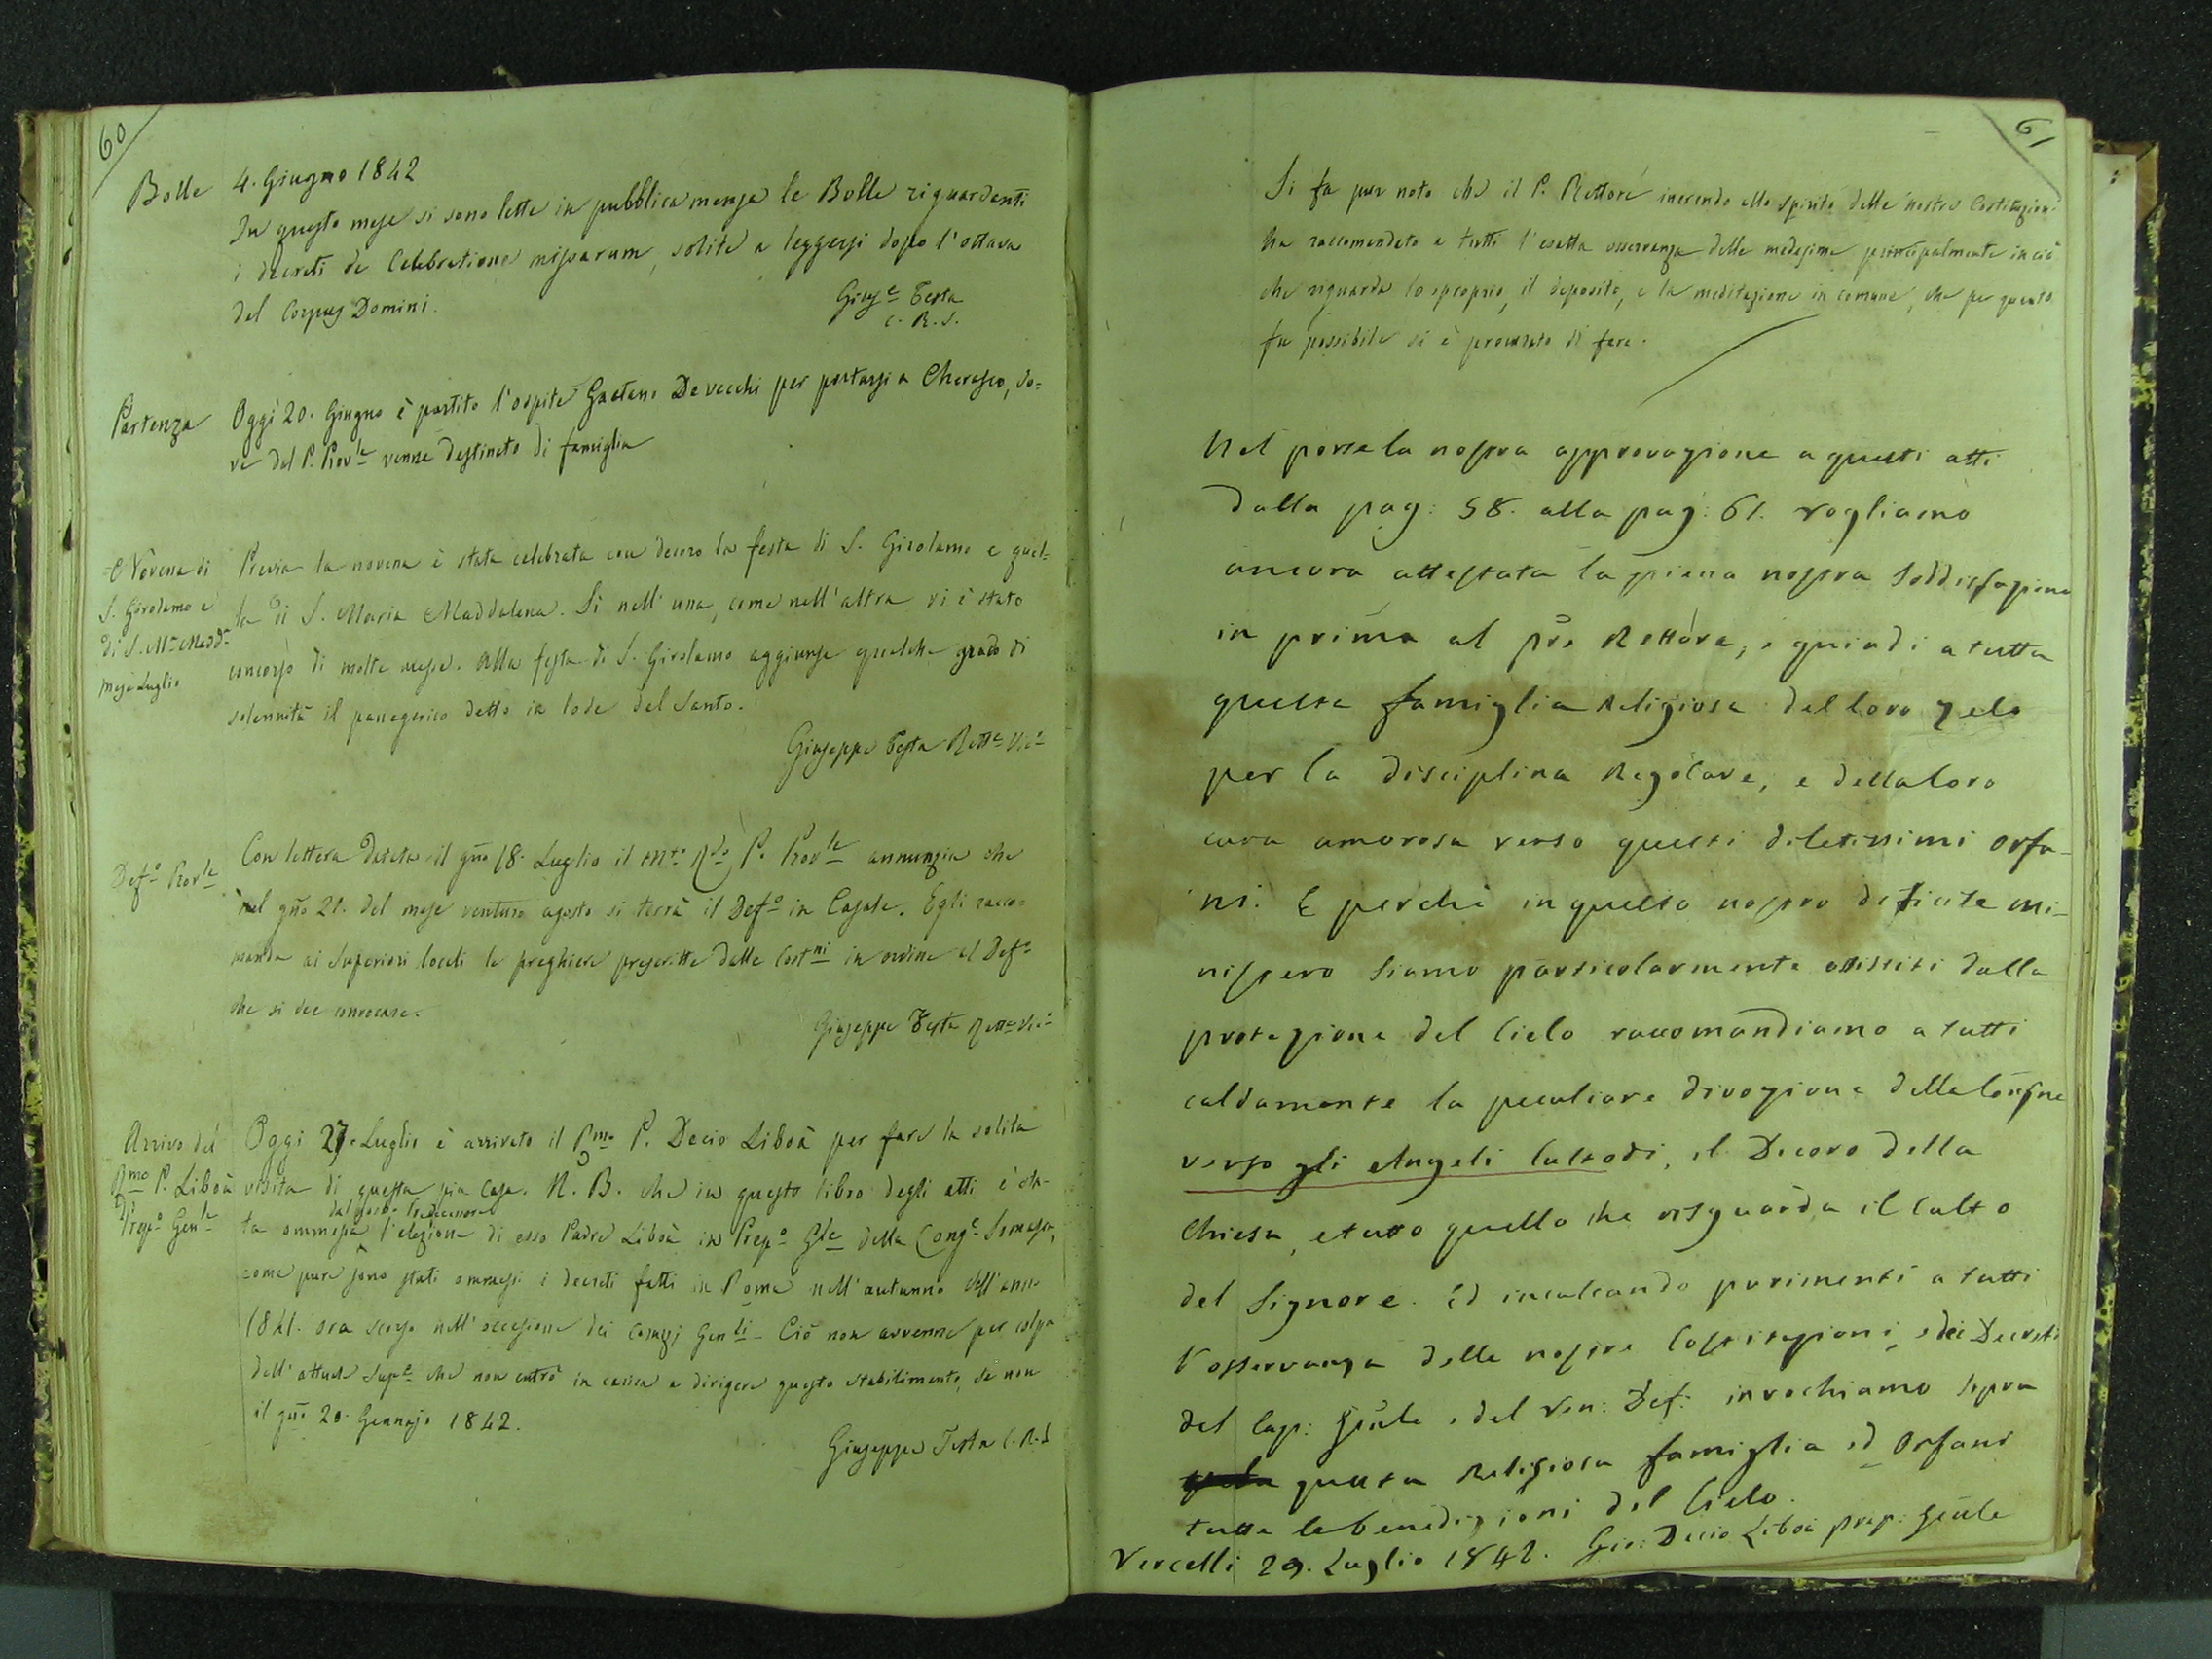 60
Bolle
4. Giugno 1842
In questo mese si sono lette in pubblica mensa le Bolle riguardanti
i decreti de Celebratione missarum, solite a leggersi dopo l'ottava
del Corpus Domini.
Gius.e Testa
C. R. S.
Partenza
Oggi 20. Giugno è partito l'ospite Gaetano Devecchi per portarsi a Cherasco, do=
ve dal P. Prov.le venne destinato di famiglia
Novena di
S. Girolamo e
di S. M.a Madd.a
mese Luglio
Previa la novena è stata celebrata con decoro la festa di S. Girolamo e quel=
la di S. Maria Maddalena. Sì nell'una, come nell'altra vi è stato
concorso di molte messe. Alla festa di S. Girolamo aggiunse qualche grado di
solennità il panegirico detto in lode del Santo.
Giuseppe Testa Rett.e Vic.o
Def.o Prov.le
Con lettera datata il gno 18. Luglio il M.to R.do P. Prov.le annunzia che
nel gno 21. del mese venturo agosto si terrà il Def.o in Casale. Egli racco=
manda ai Superiori locali le preghiere prescritte dalle Cost.ni in ordine al Def.o
che si dee convocare.
Giuseppe Testa Rett.e Vic.o
Arrivo del
R.mo P. Liboà
Prep.o Gen.le
Oggi 27. Luglio è arrivato il R.mo P. Decio Liboà per fare la solita
visita di questa pia Casa. N. B. che in questo libro degli atti è sta-
dal Predecessore
ta ommessa l'elezione di esso Padre Liboà in Prep.o G.le della Cong.e Somasca,
come pure sono stati ommessi i decreti fatti in Roma nell'autunno dell'anno
1841. ora scorso nell'occasione dei Comizj Gen.li Ciò non avvenne per colpa
dell'attuale Sup.e che non entrò in carica a dirigere questo stabilimento, se non
il gno 20. Gennajo 1842.
Giuseppe Testa C.R.S
61
Si fa pur noto che il P. Rettore inerendo allo spirito delle nostre Costituzioni
ha raccomandato a tutti l'esatta osservanza delle medesime principalmente in ciò
che riguarda lo sproprio, il deposito, e la meditazione in comune, che per quanto
fu possibile si è procurato di fare.
Nel porre la nostra approvazione a questi atti
dalla pag: 58. alla pag: 61. vogliamo
ancora attestata la piena nostra soddisfazione
in prima al pre Rettore, e quindi a tutta
questa famiglia Religiosa del loro zelo
per la disciplina Regolare, e della loro
cura amorosa verso questi diletissimi orfa-
ni. E perchè in questo nostro dificile mi-
nistero siamo particolarmente assistiti dalla
protezione del Cielo raccomandiamo a tutti
caldamente la peculiare divozione della Congne
verso gli Angeli Custodi, il Decoro della
Chiesa, e tutto quello che risguarda il culto
del Signore. Ed inculcando parimenti a tutti
l'osservanza delle nostre Costituzioni, e dei Decreti
del Cap: Gnle e del Ven: Def: invochiamo sopra
questa Religiosa famiglia ed Orfani
tutte le benedizioni del Cielo.
Vercelli 29. Luglio 1842. Gio: Decio Liboà prep: Gnle